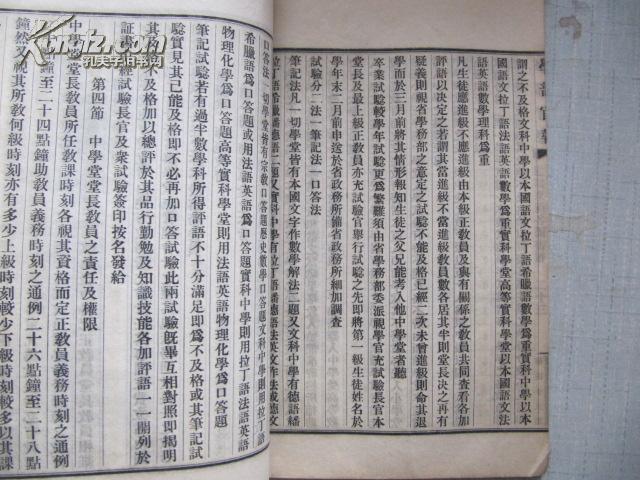 學部官報
謂之不及格文科中學以本國語文拉丁語希臘語數學爲重實科中學以本
國語文拉丁語法語英語數學爲重實科學堂高等實科學堂以本國語文法
語英語數學理科爲重
凡生徒應進級不應進級由本級正教員及與有關係之教員共同查看各加
評語以決定之若謂其當進級不當進級教員數各居其半則堂長決之再有
疑義則視省學務部之意定之試驗不能及格已經二次未曾進級則命其退
學而於三月前將其情形報知生徒之父兄能考入他中學堂者聽
卒業試驗較學年試驗更爲繁難須由省學務部委派視學官充試驗長官本
堂長及最上級長教員亦充試驗官舉行試驗之先即將第一級生徒姓名於
學年末二月前申送於省政務所備省政務所細加調查
試驗分二法一筆記法一口答法
筆記法凡一切學堂皆有本國文字作數學解法二題又文科中學有德語繙
拉丁語希臘語繙德語二題又實科中學有拉丁語繙德語法英文作法或德文
口答法一切學堂皆有宗教口答題歷史數學口答題文科中學則用拉丁語
希臘語爲口答題或用法語英語爲口答題實科中學則用拉丁語法語英語
物理化學爲口答題高等實科學堂則用法語英語物理化學爲口答題
筆記試驗若有過半數學科所得評語不十分滿足即爲不及格或其筆記試
驗實見其已能及格即不必再加口答試驗此兩試驗旣畢互相對照即揭明
其及格不及格加以總評於其品行勤勉及知識技能各加評語一一開列於
證書經試驗長官及衆試驗簽印按名發給
第四節 中學堂堂長教員之責任及權限
中學堂堂長教員所任教課時刻各視其資格而定正教員義務時刻之通例
二十點鐘至二十四點鐘助教員義務時刻之通例二十六點鐘至二十八點
鐘然又視其所教何級時刻亦有多少上級時刻較少下級時刻較多以其課
孔夫子旧书网